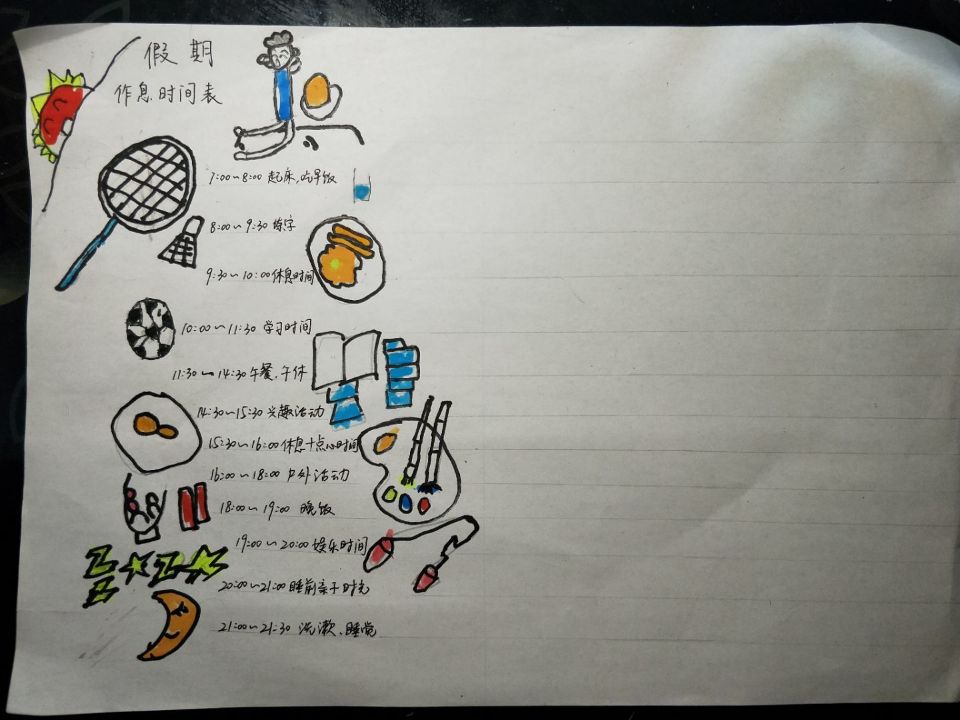 假期
作息时间表
7:00~8:00 起床,吃早饭
8:00~9:30 练字
9:30~10:00 休息时间
10:00~11:30 学习时间
11:30~14:30 午餐、午休
14:30~15:30 兴趣活动
15:30~16:00 休息+点心时间
16:00~18:00 户外活动
18:00~19:00 晚饭
19:00~20:00 娱乐时间
20:00~21:00 睡前亲子时光
21:00~21:30 洗漱、睡觉